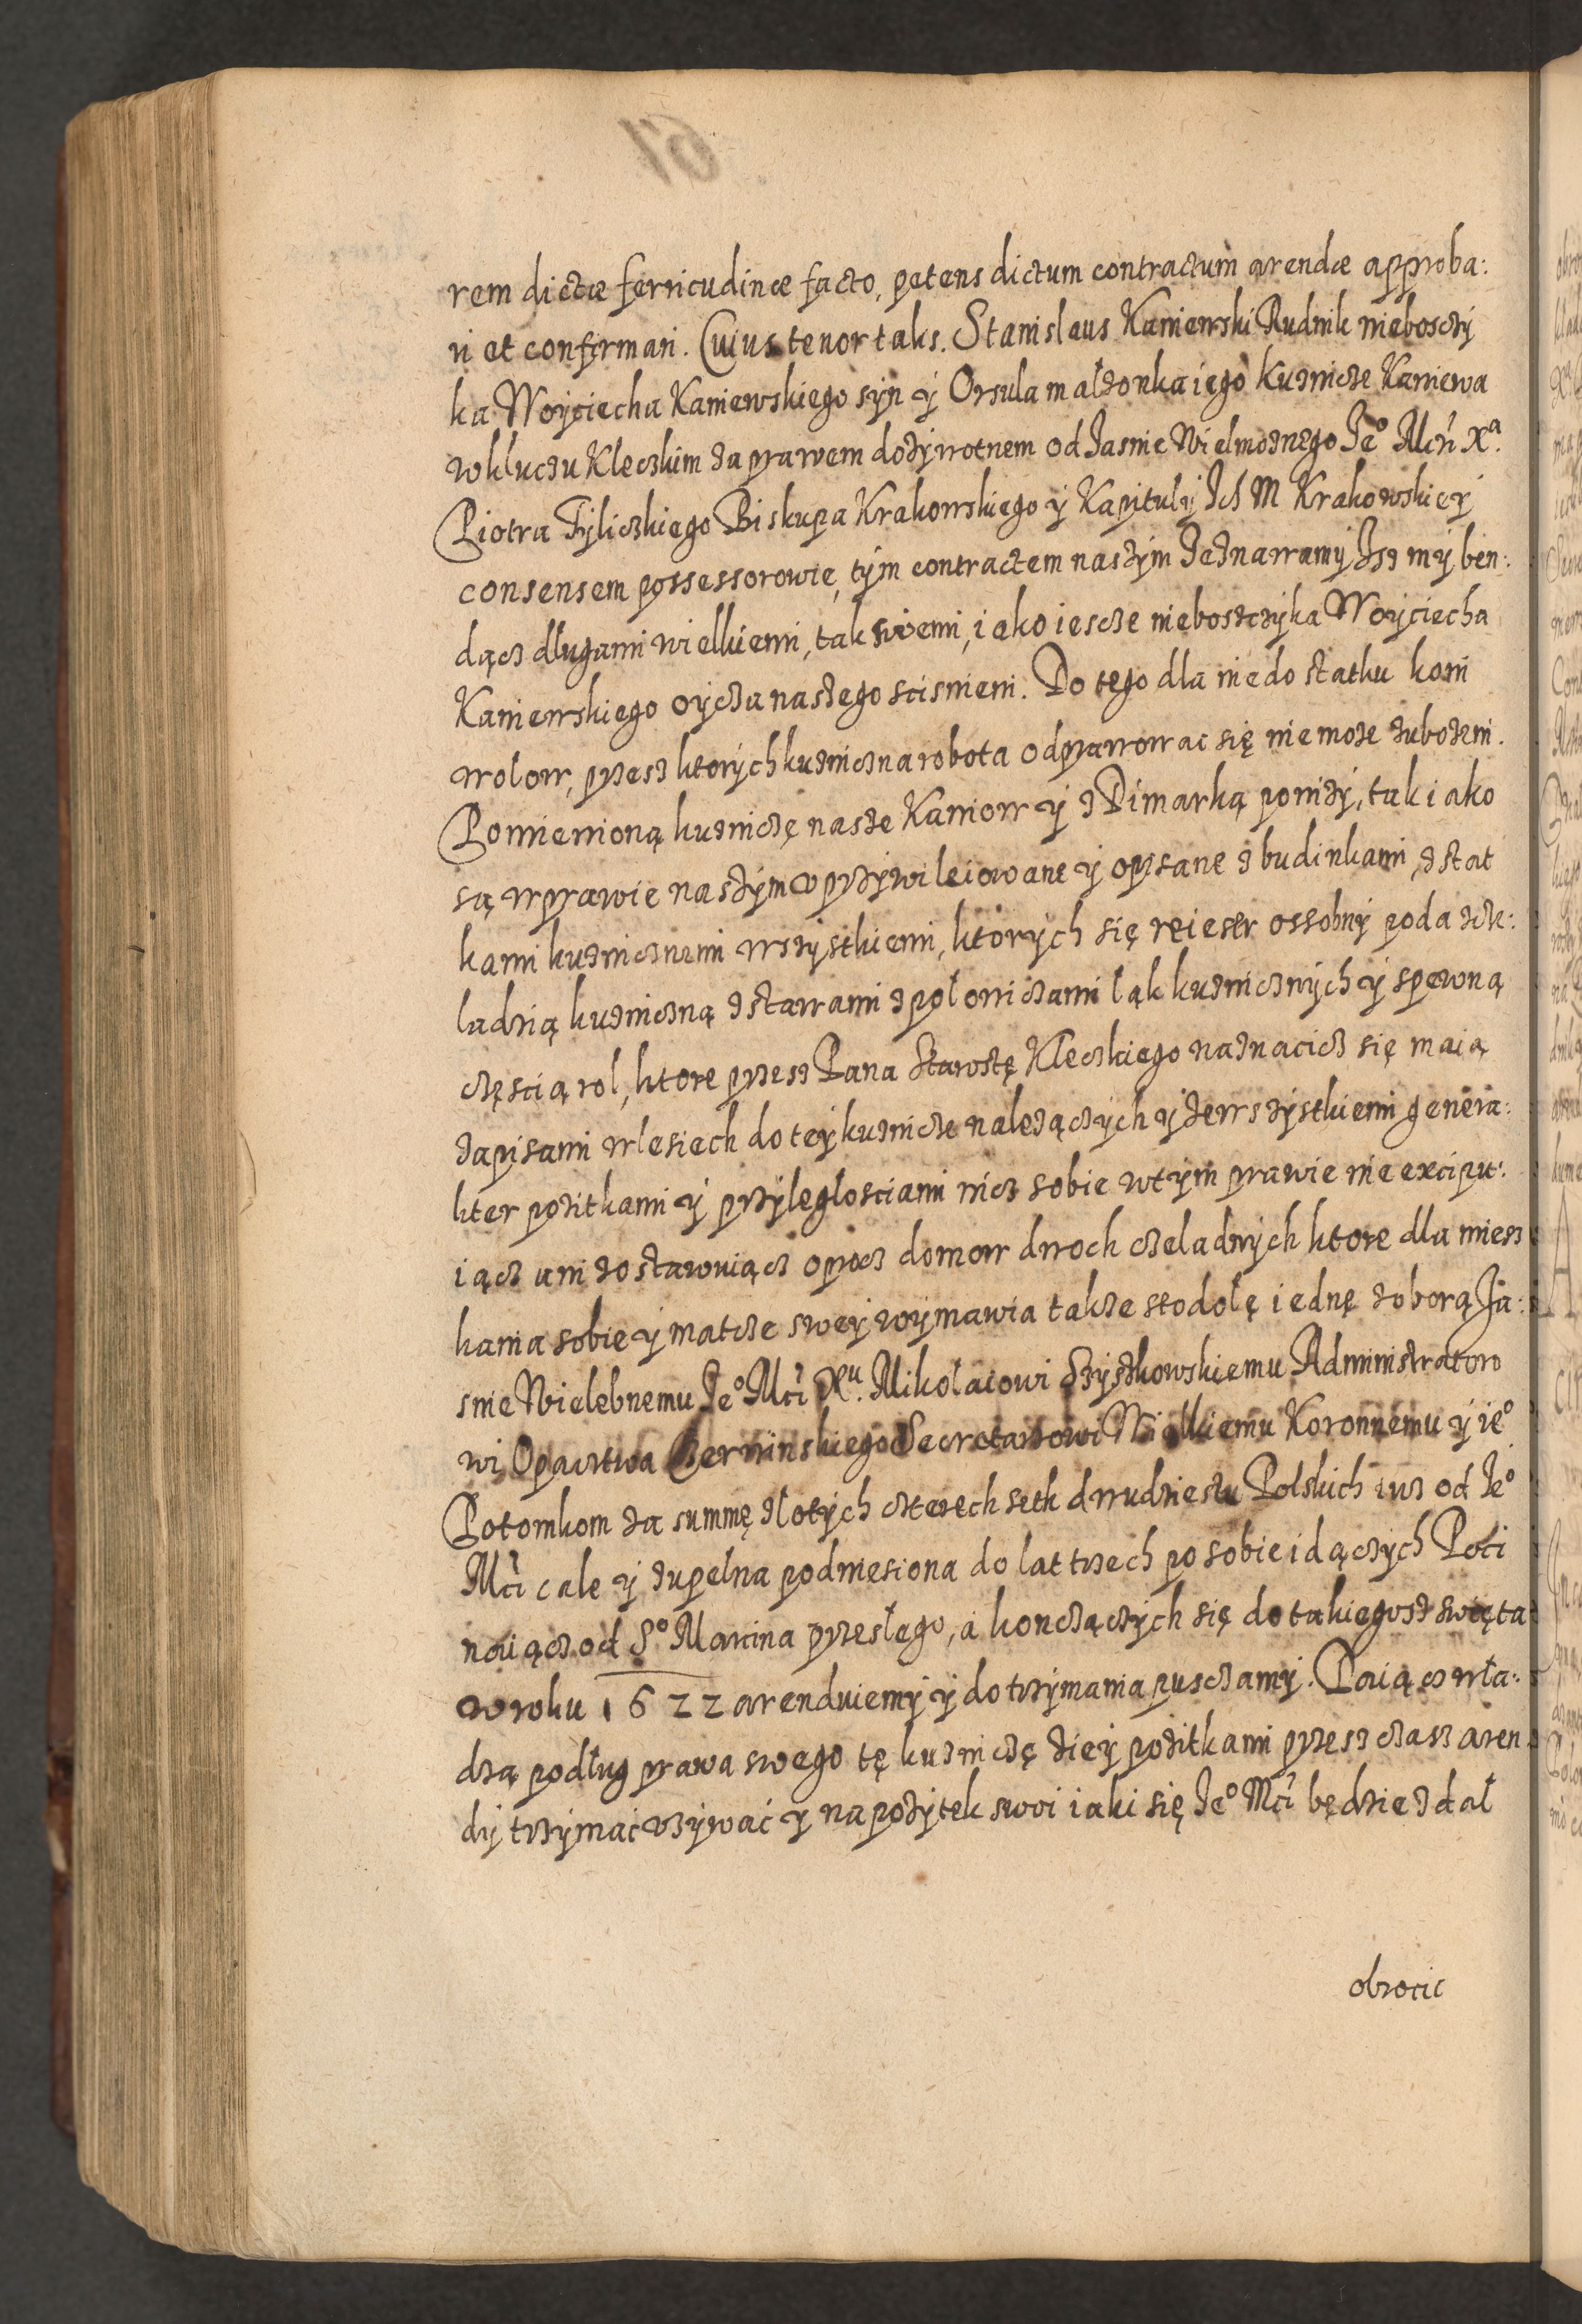 rem dictæ ferricudinæ facto, petens dictum contractum arendæ approba:
ri et confirmari. Cuius tenor talis. Stanislaus Kaniewski Rudnik nieboszczy
ka Woyciecha Kaniewskiego syn y Orsula małzonka iego kuznicze Kaniewa
w kluczu Kleczkim za prawem dozywotnem od Jasnie Wielmoznego Je⁰ Mći Xᵃ.
Piotra Tyliczkiego Biskupa Krakowskiego y Kapituly Ich M Krakowskiey
consensem possessorowie, tym contractem naszym zeznawamy Jsz my ben:
dącz dlugami wielkiemi, tak swemi, iako iescze nieboszczyka Woyciecha
Kaniewskiego oycza naszego scisnieni. Do tego dla niedostatku koni
wołow, przesz ktorych kuzniczna robota odprawowac się nie może zubożeni.
Pomienioną kuzniczę nasze Kaniow y z Dimarką ponizy, tak iako
są w prawie naszym uprzywileiowane y opysane z budinkami, z stat
kami kuznicznemi wszystkiemi, ktorych się reiestr ossobny poda zcze:
ladzią kuzniczną z stawami z połowiczami ląk kuznicznych y spewną
częscią rol, ktore przesz Pana Starostę Kleczkiego naznacicz się maią
zapisami w lesiech do tey kuznicze należączych y ze wszystkiemi genera:
liter pozitkami y przyległosciami nicz sobie w tym prawie nie excipu:
iącz ani zostawuiącz oprocz domow dwoch czeladnych ktore dla miesz
kania sobie y matcze swey wymawia takze stodołę iednę z oborą Ja:
snie Wielebnemu Je⁰ Mći Xᵘ. Mikołaiowi Szyszkowskiemu Administratoro
wi Opacztwa Czerwinskiego Secretarzowi Wielkiemu Koronnemu y ie⁰
Potomkom za summę złotych czterech seth dwudziestu Polskich iusz od Je⁰
Mći cale y zupelna podniesiona do lat trzech po sobie idączych Poci
naiącz od S⁰ Marcina przesłego, a konczączych się do takiegosz swięta
w roku 1622 arenduiemy y do trzymania pusczamy. Paiącz wła:
dzą podług prawa swego tę kuzniczę ziey pozitkami przesz czasz aren
dy trzymać uzywać y na pozytek swoi iaki się Je⁰ Mći będzie zdał
obrocic